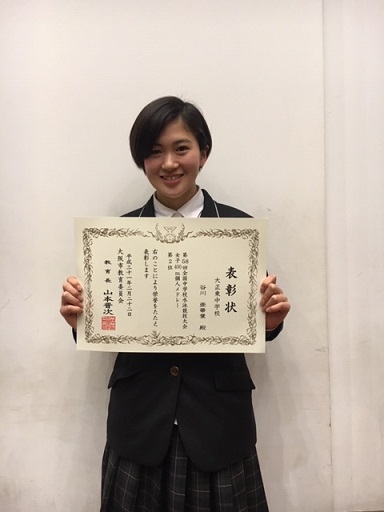 表彰状
大正東中学校
谷川 亜華葉 殿
第58回全国中学校水泳競技大会
女子400m個人メドレー
第2位
右のことにより栄誉をたたえ
表彰します
平成三十一年二月二十二日
大阪市教育委員会
教育長 山本晋次